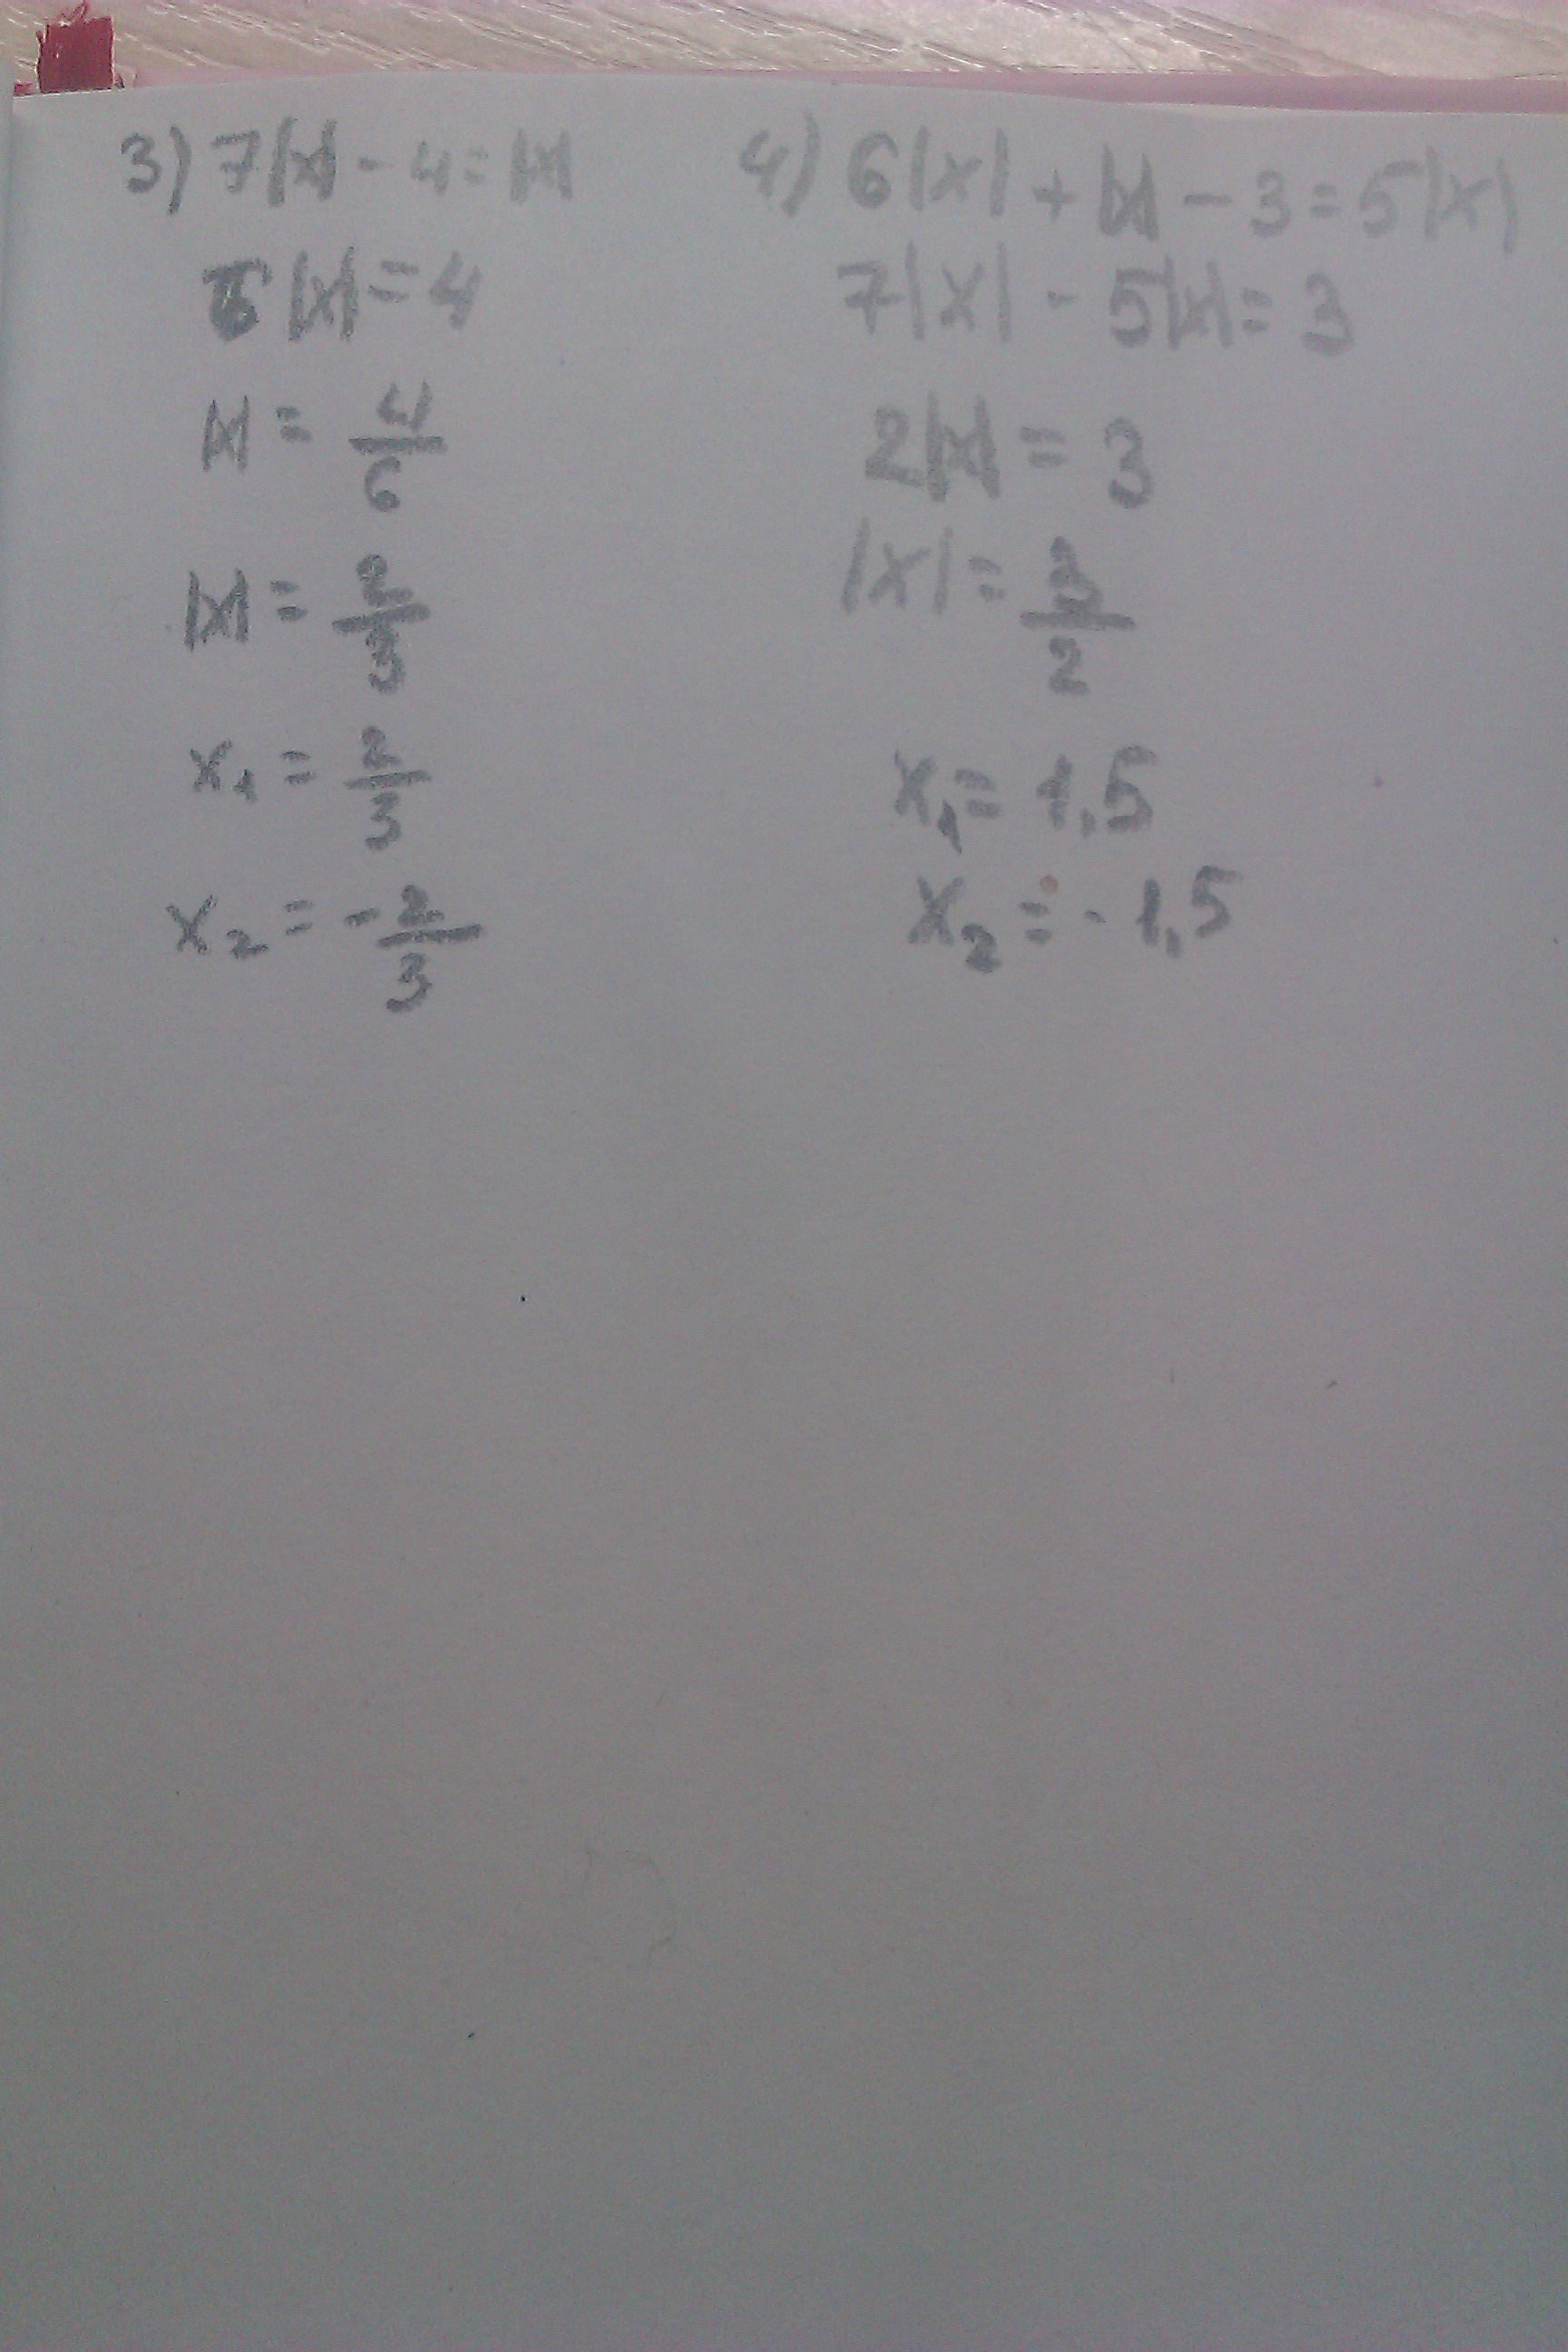 3) 7|x| - 4 = |x|
6|x| = 4
|x| = 4/6
|x| = 2/3
x₁ = 2/3
x₂ = -2/3
4) 6|x| + |x| - 3 = 5|x|
7|x| - 5|x| = 3
2|x| = 3
|x| = 3/2
x₁ = 1,5
x₂ = -1,5